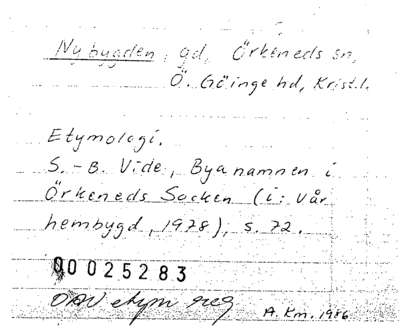 Nybygden, gd, Örkeneds sn,
Ö. Göinge hd, Krist.l.
Etymologi.
S.-B. Vide, Byanamnen i
Örkeneds Socken (i: Vår
hembygd, 1978), s. 72.
00025283
OAU etym reg
A. Km. 1986